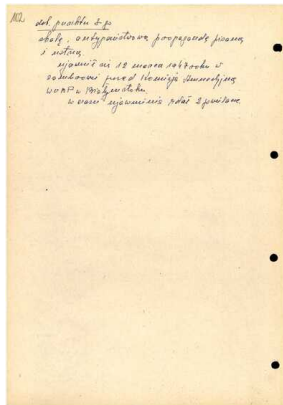 dot. punktu 2 p.
antypaństwową propagandę pisaną
i ustną.
ujawnił się 12 marca 1947 roku w
Zambrowie przed Komisją Amnestyjną
WUBP w Białymstoku.
w czasie ujawnienia zdał